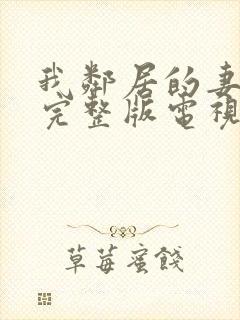 我鄰居的妻
完整版電視
草莓蜜餞